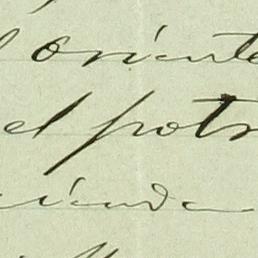 l oriente
el potr
ienda